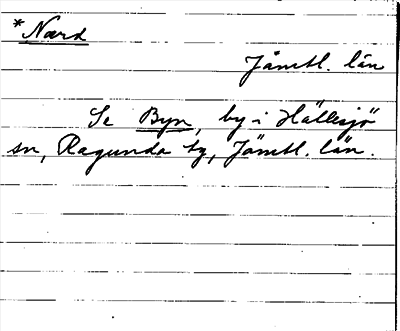 *Nærd
Jämtl. län
Se Byn, by i Hällesjö
sn, Ragunda tg, Jämtl. län.